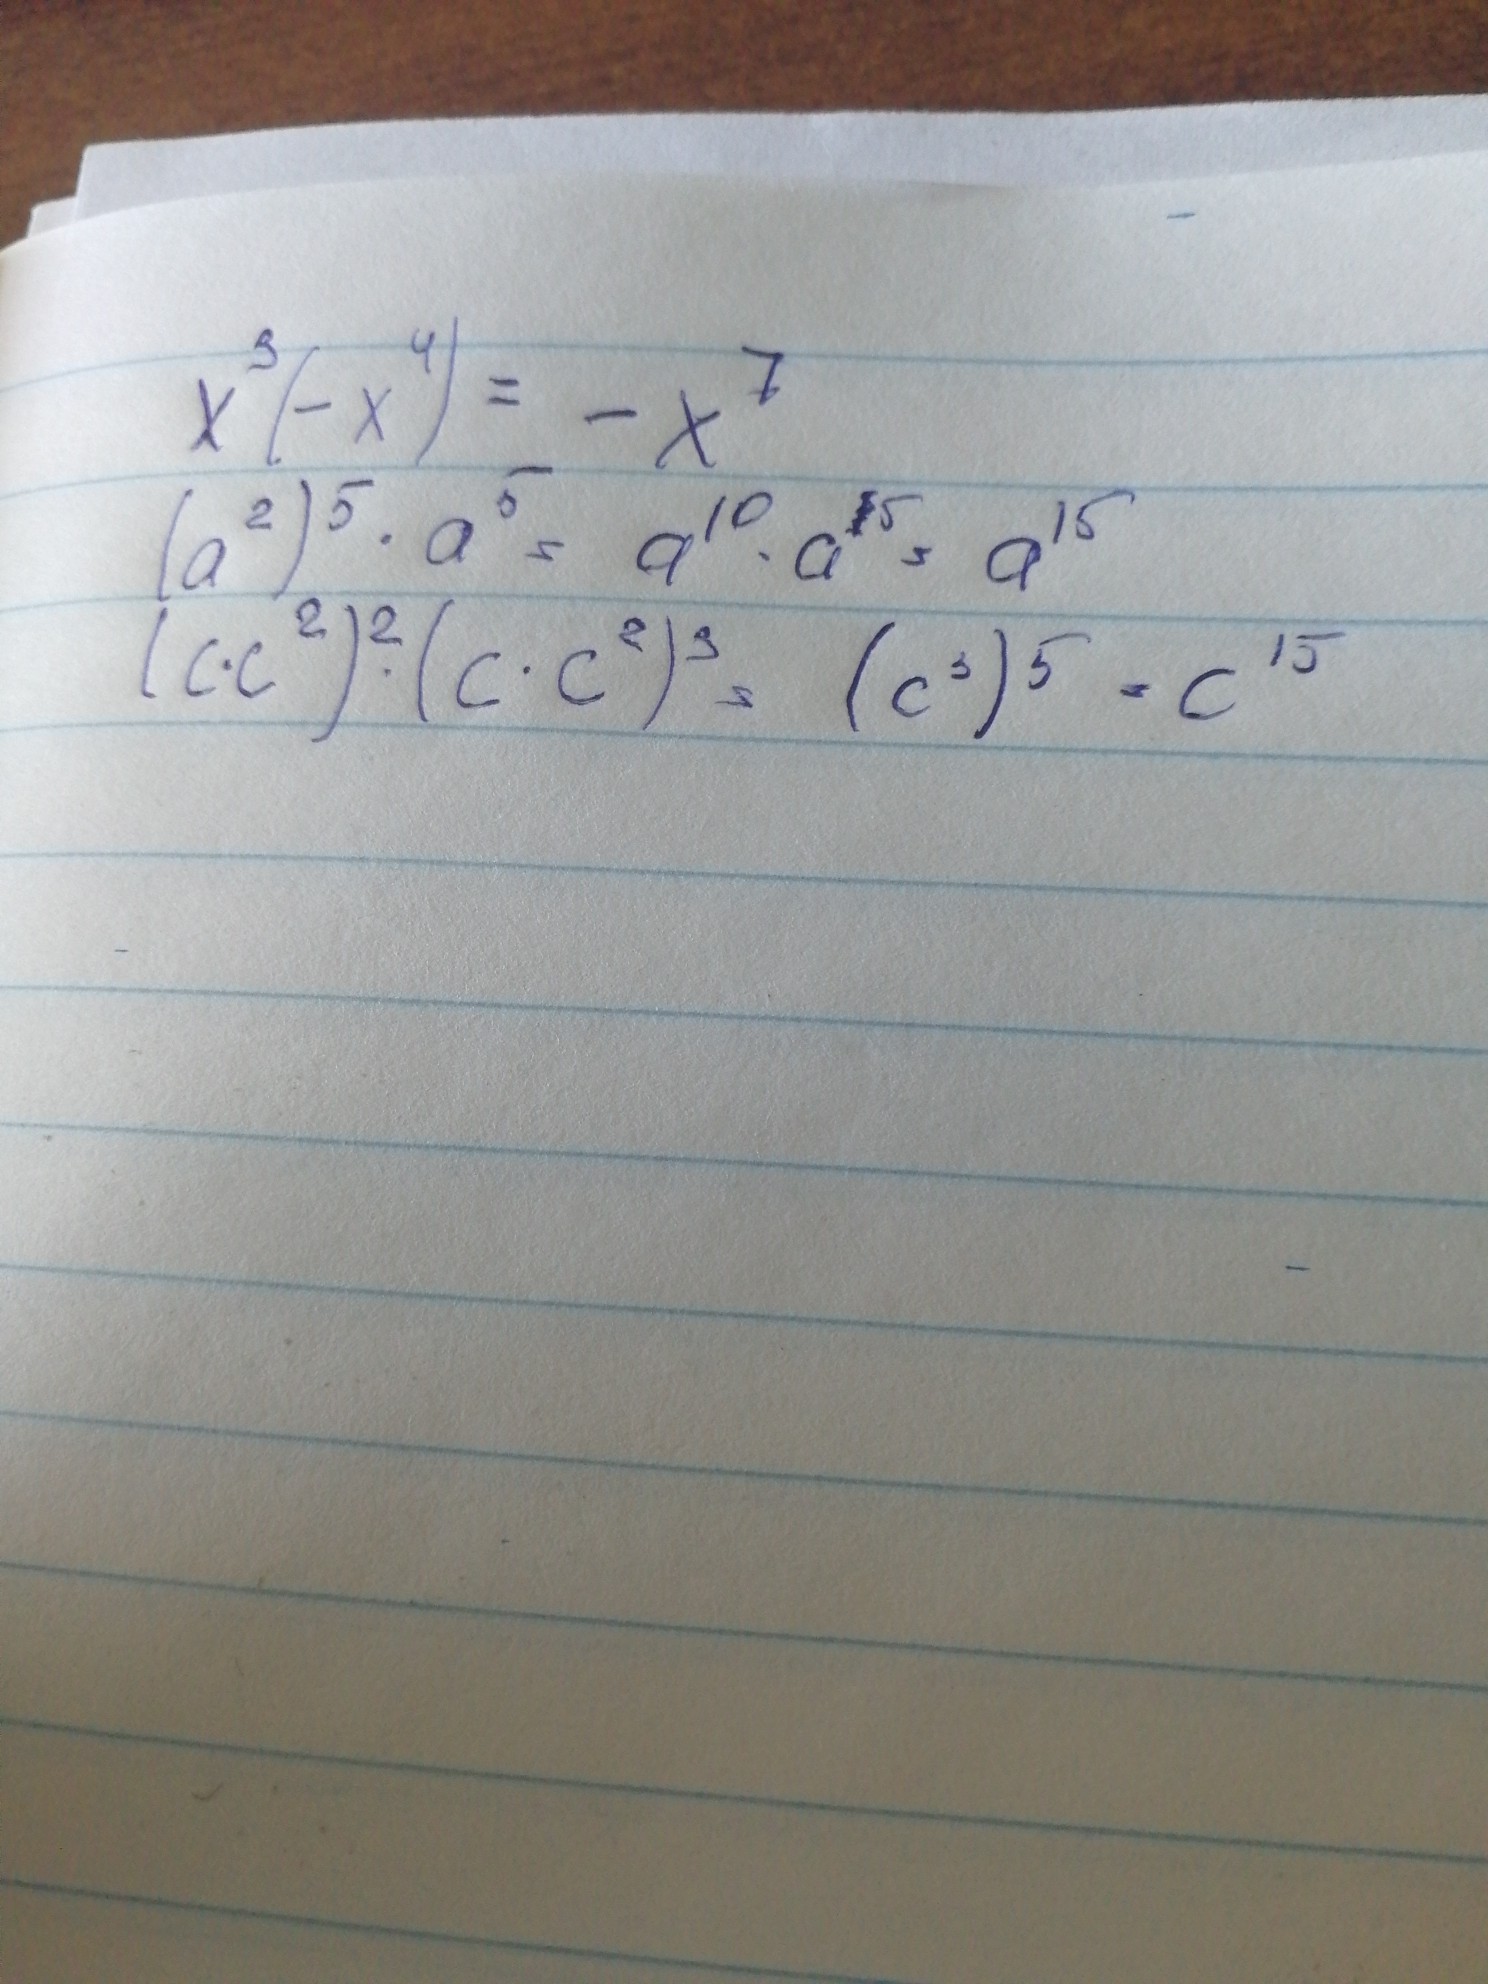 x³(-x⁴) = -x⁷
(a²)⁵ · a⁵ = a¹⁰ · a⁵ = a¹⁵
(c·c²)² · (c·c²)³ = (c³)⁵ = c¹⁵